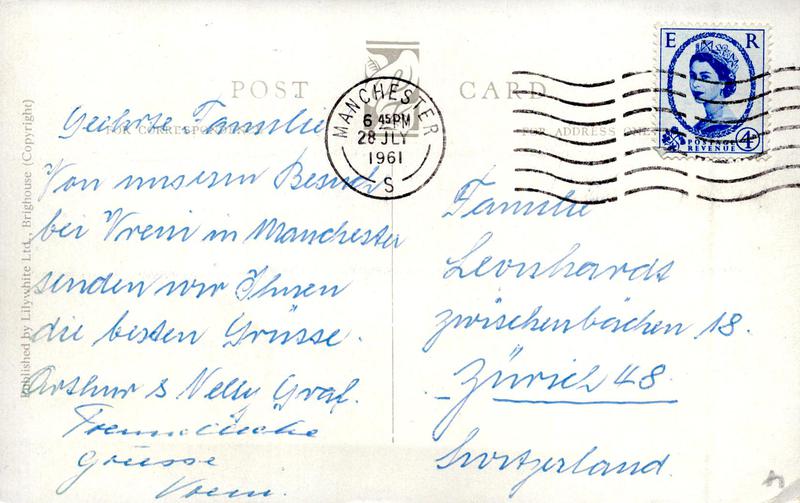 POST CARD
FOR CORRESPONDENCE
FOR ADDRESS ONLY
Published by Lilywhite Ltd., Brighouse (Copyright)
MANCHESTER
6 45 PM
28 JLY
1961
S
E R
POSTAGE
REVENUE
4D
Geehrte Familie
Von unserm Besuch
bei Vreni in Manchester
senden wir Ihnen
die besten Grüsse.
Arthur & Nelly Graf.
Freundliche
Grüsse
Vreni.
Familie
Leonhardt
Zwischenbächen 18.
Zürich 48
Switzerland.